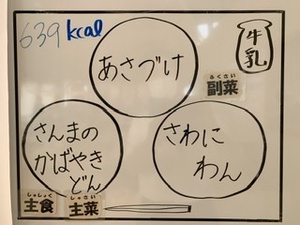 639 kcal
牛乳
あさづけ
ふくさい
副菜
さんまの
かばやき
どん
さわに
わん
しゅしょく
主食
しゅさい
主菜